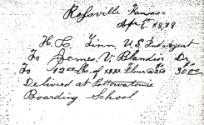 Rossville Kansas
Apr 1st 1878
H. C. Linn U.S. Ind. Agent
To James. V. Blandin Dr
To 1200 lbs of Flour 2.50 30.00
Delivered at Pottowatomie
Boarding School